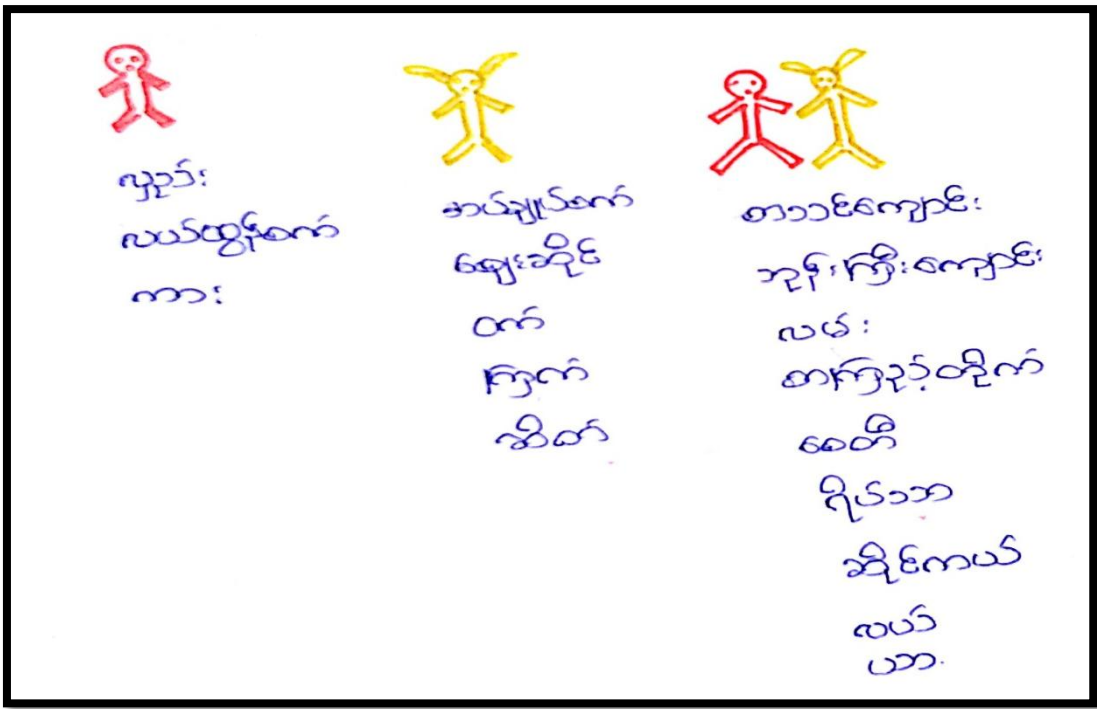 လှည်း
လယ်ထွန်စက်
ကား
စပ်ချုပ်စက်
ဈေးဆိုင်
ဝက်
ကြက်
ဆိတ်
စာသင်ကျောင်း
ဘုန်းကြီးကျောင်း
လမ်း
စာကြည့်တိုက်
စေတီ
ရိပ်သာ
ဆိုင်ကယ်
လယ်
ယာ